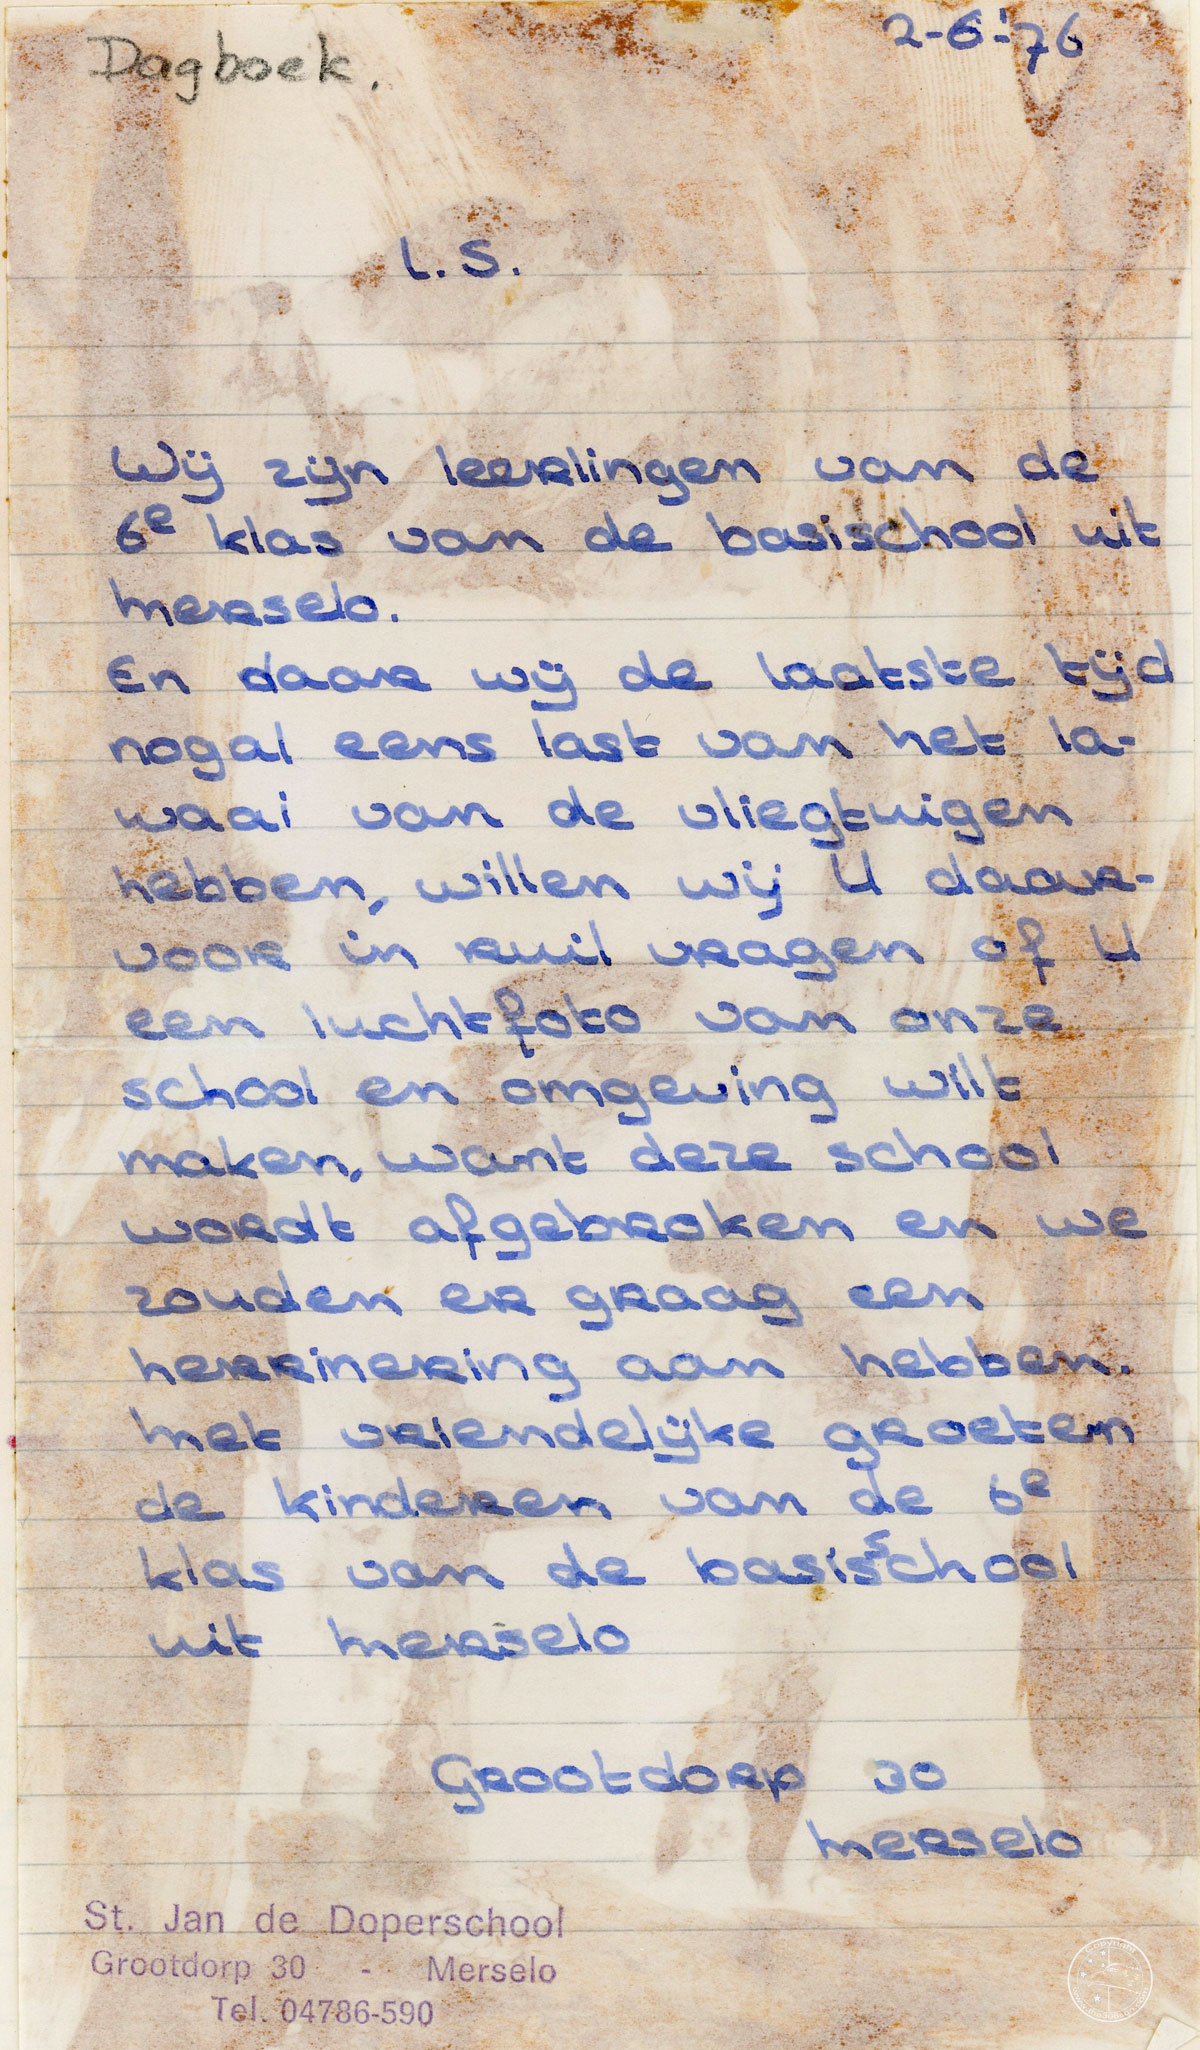 Dagboek.
2-6-'76
L.S.
Wij zijn leerlingen van de
6e klas van de basischool uit
Merselo.
En daar wij de laatste tijd
nogal eens last van het la-
waai van de vliegtuigen
hebben, willen wij U daar-
voor in ruil vragen of U
een luchtfoto van onze
school en omgeving wilt
maken, want deze school
wordt afgebroken en we
zouden er graag een
herrinering aan hebben.
Met vriendelijke groeten
de kinderen van de 6e
klas van de basisschool
uit Merselo
Grootdorp 30
Merselo
St. Jan de Doperschool
Grootdorp 30 - Merselo
Tel. 04786-590